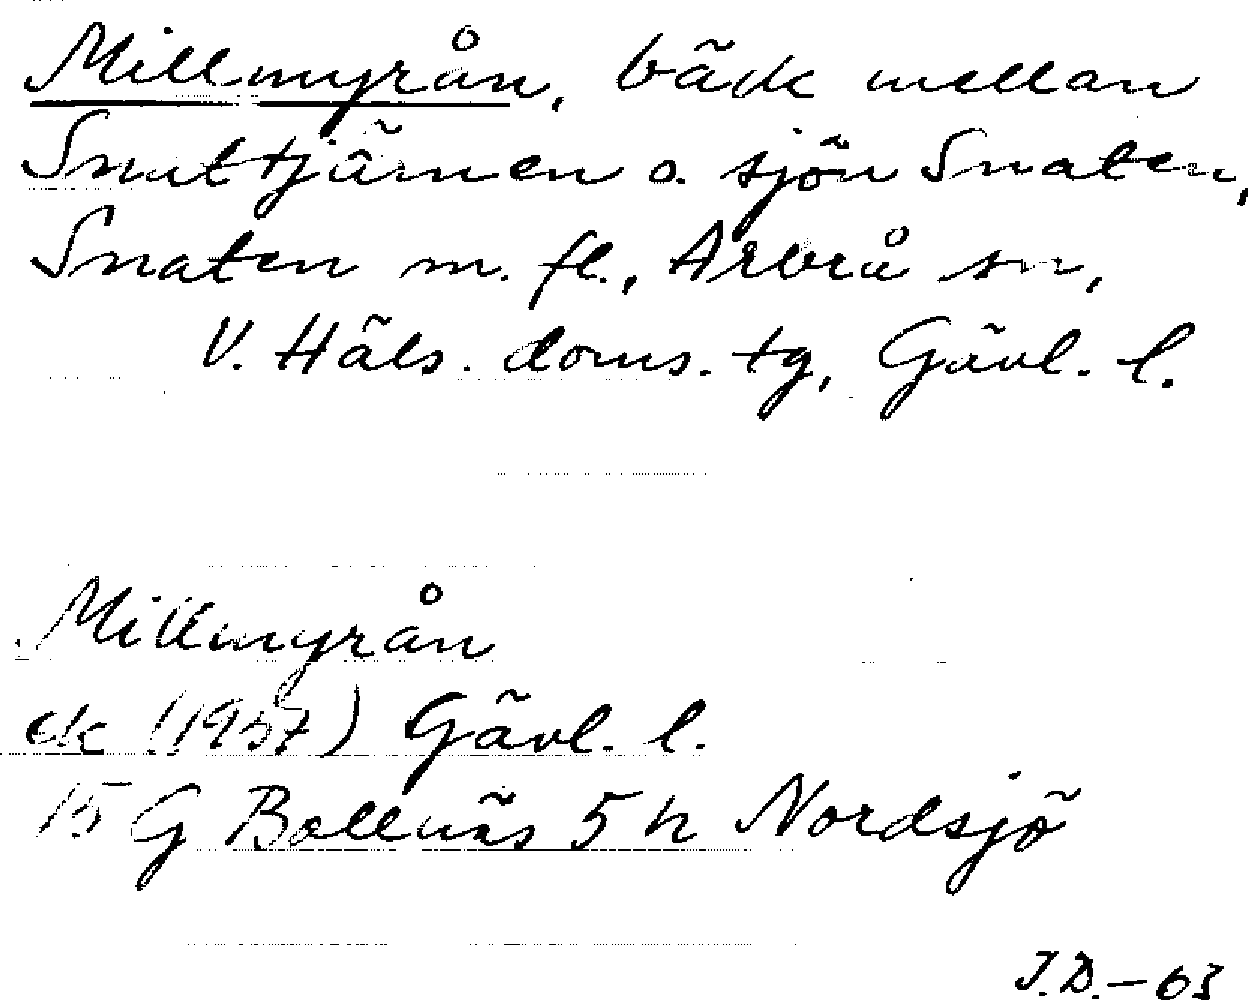 Millmyrån, bäck mellan
Snuttjärnen o. sjön Snaten,
Snaten m. fl., Arbrå sn,
V. Häls. doms. tg, Gävl. l.
Millmyrån
ek (1957) Gävl. l.
15 G Bollnäs 5 h Nordsjö
J.D.—63